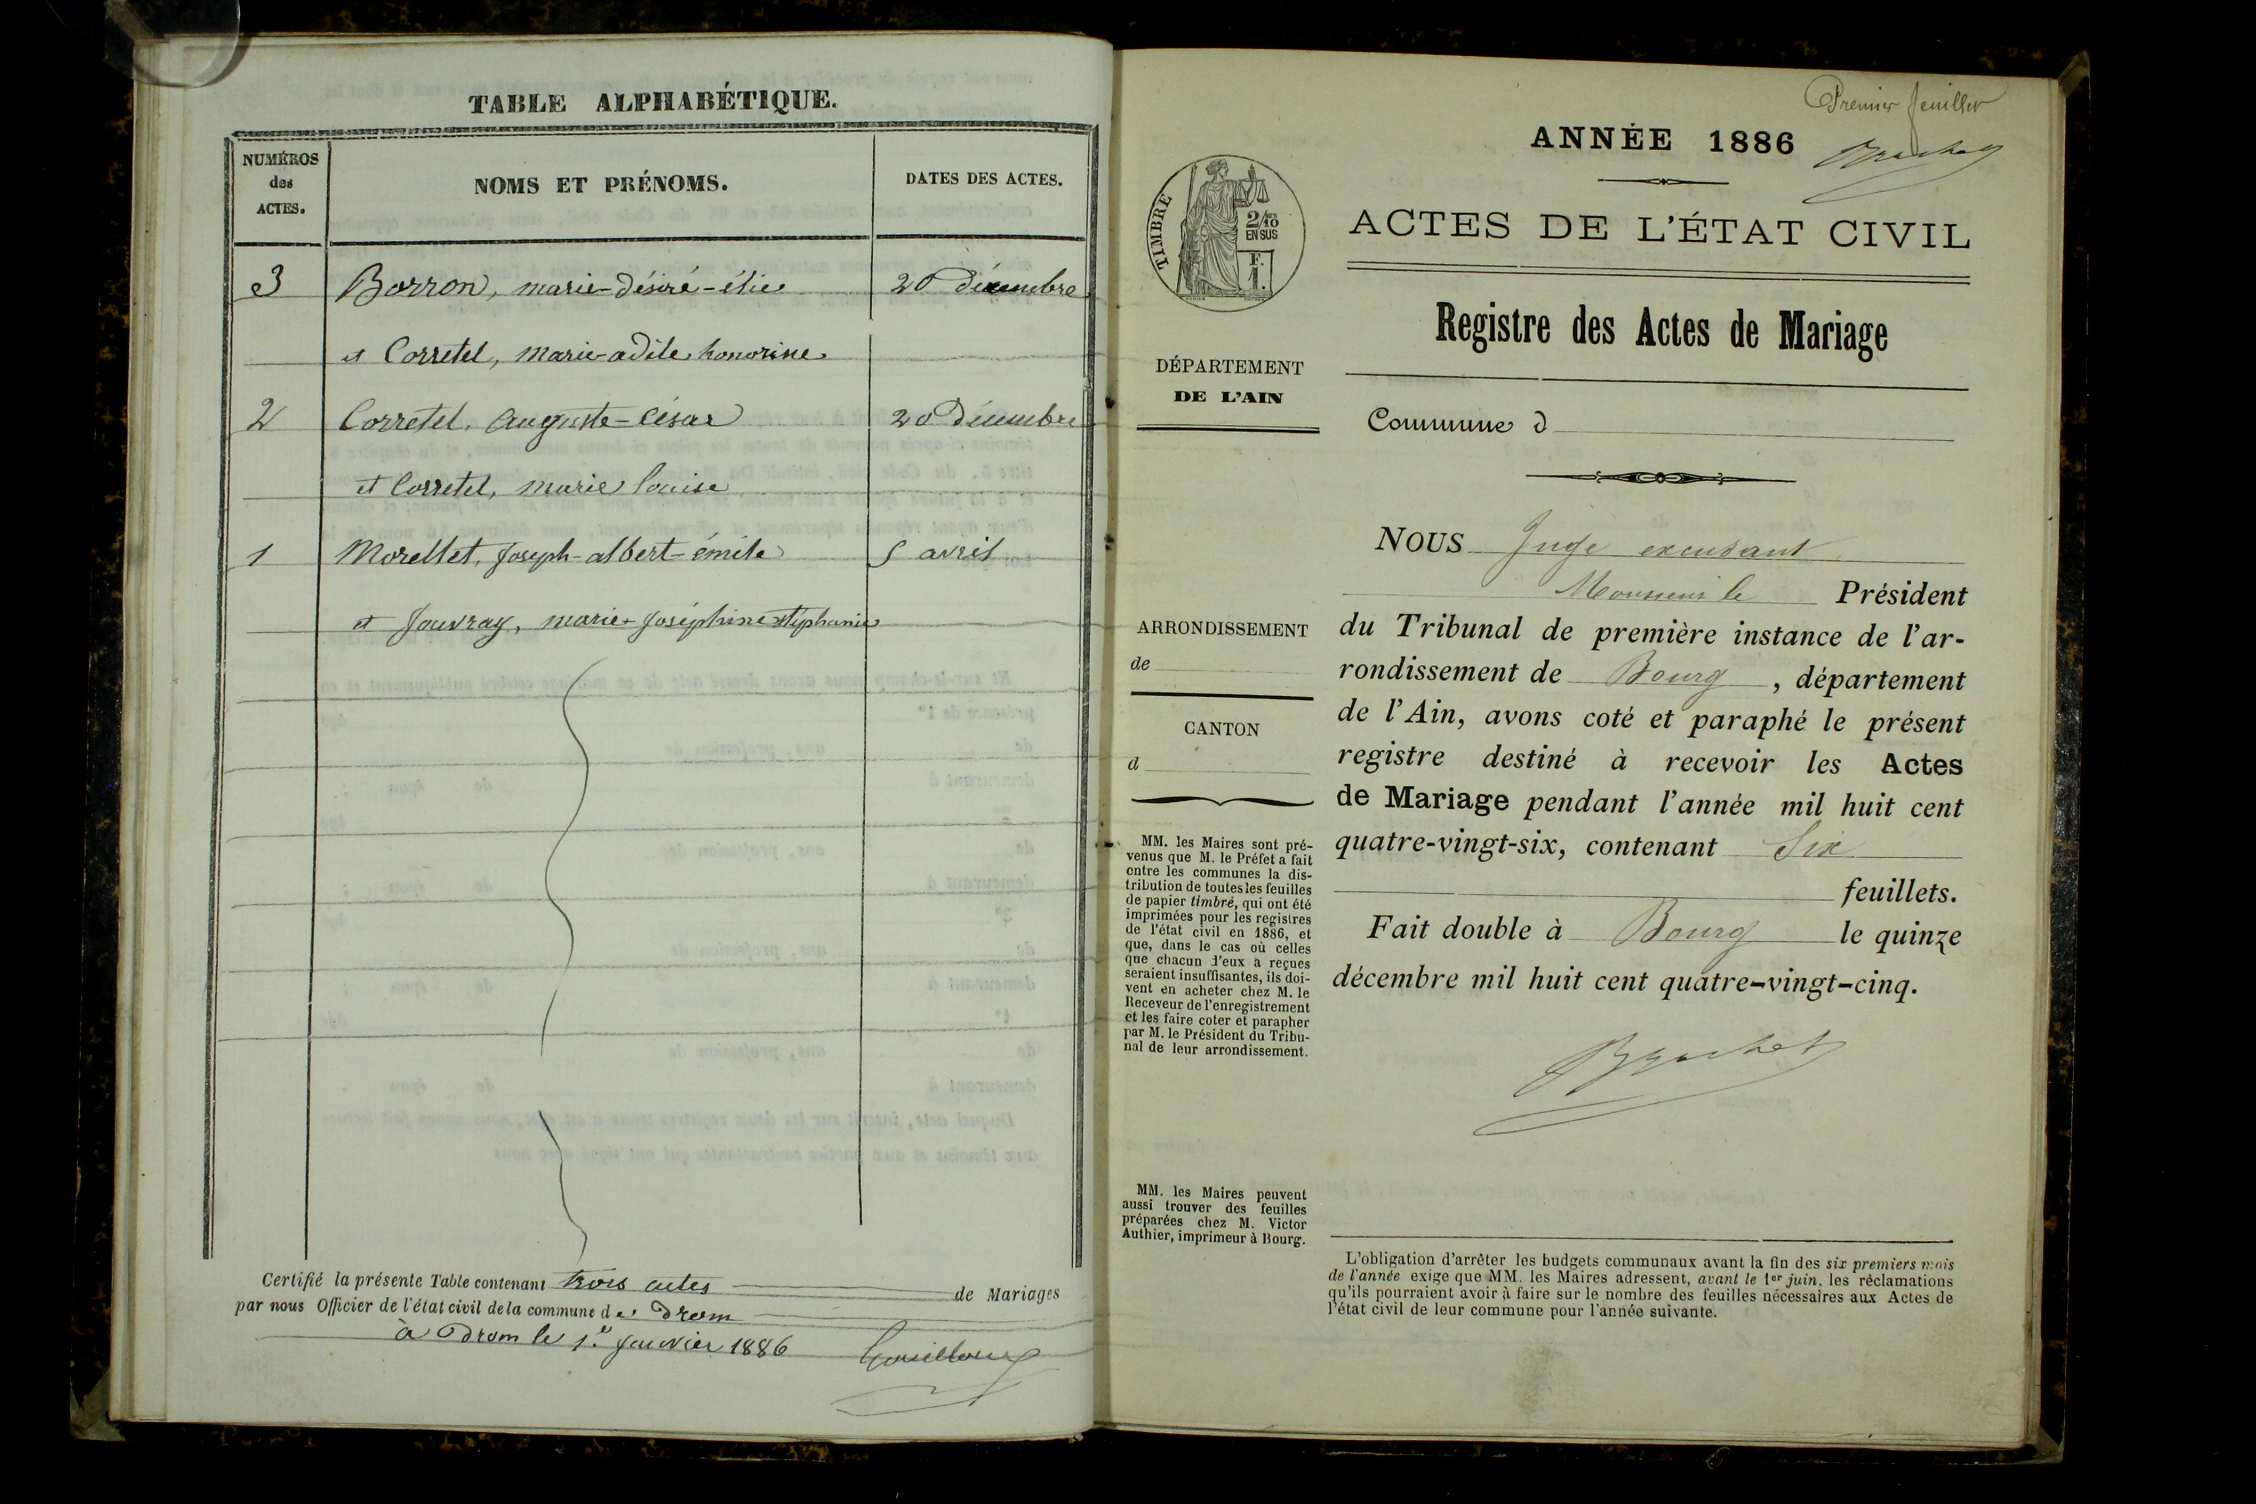 TABLE ALPHABÉTIQUE.
NUMÉROS
des
ACTES.
NOMS ET PRÉNOMS.
DATES DES ACTES.
3 Borron, marie-désiré-élie 20 décembre
et Corretel, marie-adile honorine
2 Corretel, Auguste-César 20 Décembre
et Corretel, marie louise
1 Morellet, Joseph-albert-émile 5 avril
et Jouvray, marie-Joséphine Stéphanie
Certifié la présente Table contenant trois actes de Mariages
par nous Officier de l'état civil de la commune de Drom
à Drom le 1er Janvier 1886
Premier feuillet
ANNÉE 1886
Brachet
ACTES DE L'ÉTAT CIVIL
Registre des Actes de Mariage
Commune d
TIMBRE
2/10
EN SUS
F.
1.
DÉPARTEMENT
DE L'AIN
ARRONDISSEMENT
de
CANTON
d
MM. les Maires sont pré-
venus que M. le Préfet a fait
entre les communes la dis-
tribution de toutes les feuilles
de papier timbré, qui ont été
imprimées pour les registres
de l'état civil en 1886, et
que, dans le cas où celles
que chacun d'eux a reçues
seraient insuffisantes, ils doi-
vent en acheter chez M. le
Receveur de l'enregistrement
et les faire coter et parapher
par M. le Président du Tribu-
nal de leur arrondissement.
MM. les Maires peuvent
aussi trouver des feuilles
préparées chez M. Victor
Authier, imprimeur à Bourg.
NOUS Juge excusant
Monsieur le Président
du Tribunal de première instance de l'ar-
rondissement de Bourg, département
de l'Ain, avons coté et paraphé le présent
registre destiné à recevoir les Actes
de Mariage pendant l'année mil huit cent
quatre-vingt-six, contenant Six
feuillets.
Fait double à Bourg le quinze
décembre mil huit cent quatre-vingt-cinq.
Brachet
L'obligation d'arrêter les budgets communaux avant la fin des six premiers mois
de l'année exige que MM. les Maires adressent, avant le 1er juin, les réclamations
qu'ils pourraient avoir à faire sur le nombre des feuilles nécessaires aux Actes de
l'état civil de leur commune pour l'année suivante.